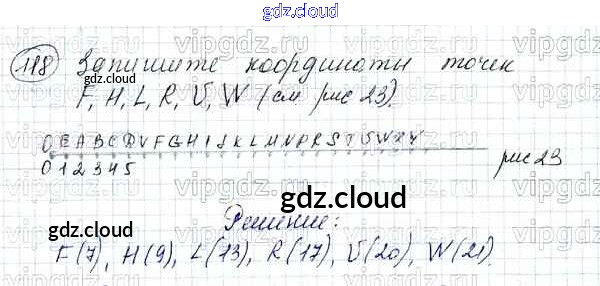 gdz.cloud
118 Запишите координаты точек
gdz.cloud
F, H, L, R, U, W (см рис 23).
O E A B C D V F G H I J K L M N P R S T U W X Y
0 1 2 3 4 5
рис 23
gdz.cloud
gdz.cloud
Решение:
F(7), H(9), L(13), R(17), U(20), W(21).